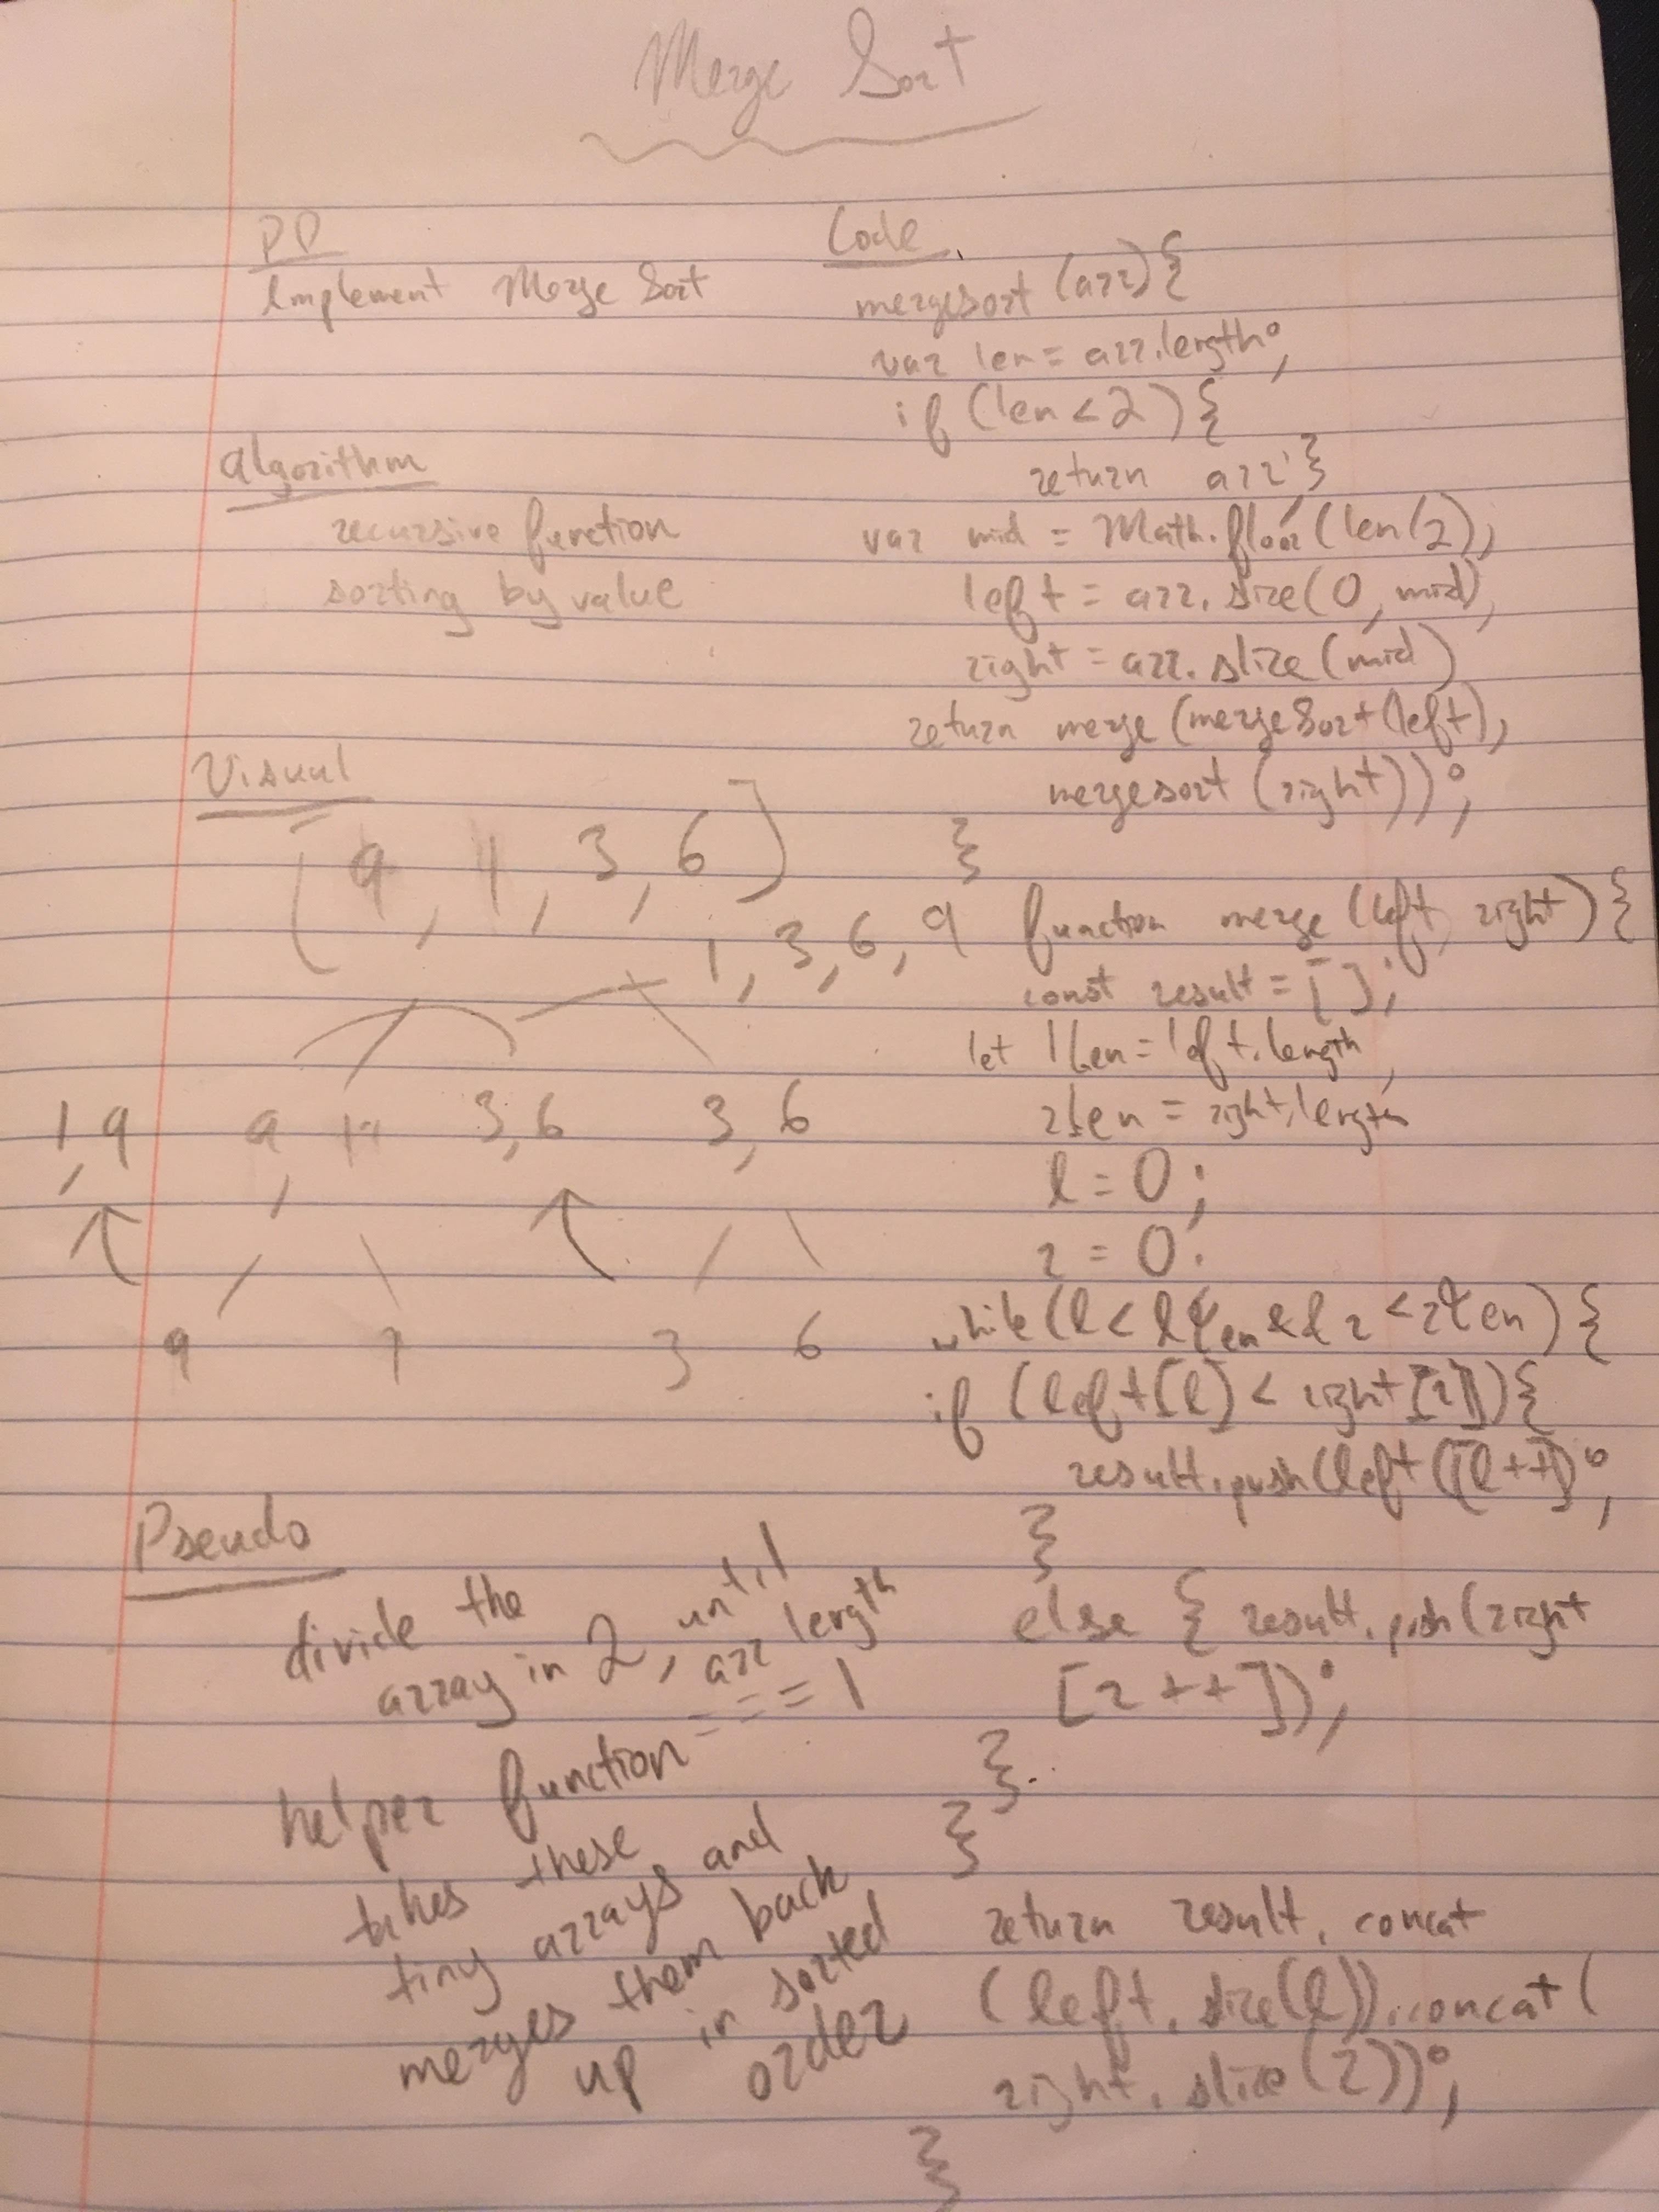 Merge Sort
PD
Implement Merge Sort
Algorithm
recursive function
sorting by value
Visual
[9, 1, 3, 6]
1, 3, 6, 9
1, 9 9, 3, 6 3, 6
9 1 3 6
Pseudo
divide the
array in 2, until
arr length
=== 1
helper function
takes these
tiny arrays and
merges them back
up in sorted
order
Code
mergesort (arr){
var len = arr.length;
if (len < 2) {
return arr;}
var mid = Math.floor(len/2),
left = arr.slice(0, mid),
right = arr.slice(mid)
return merge (mergeSort(left),
mergesort (right));
}
function merge (left, right) {
const result = [];
let lLen = left.length,
rLen = right.length
l = 0;
r = 0;
while (l < lLen && r < rLen) {
if (left[l] < right[r]){
result.push(left([l++]);
}
else { result.push(right
[r++]);
}
}
return result.concat
(left.slice(l)).concat(
right.slice(r));
}